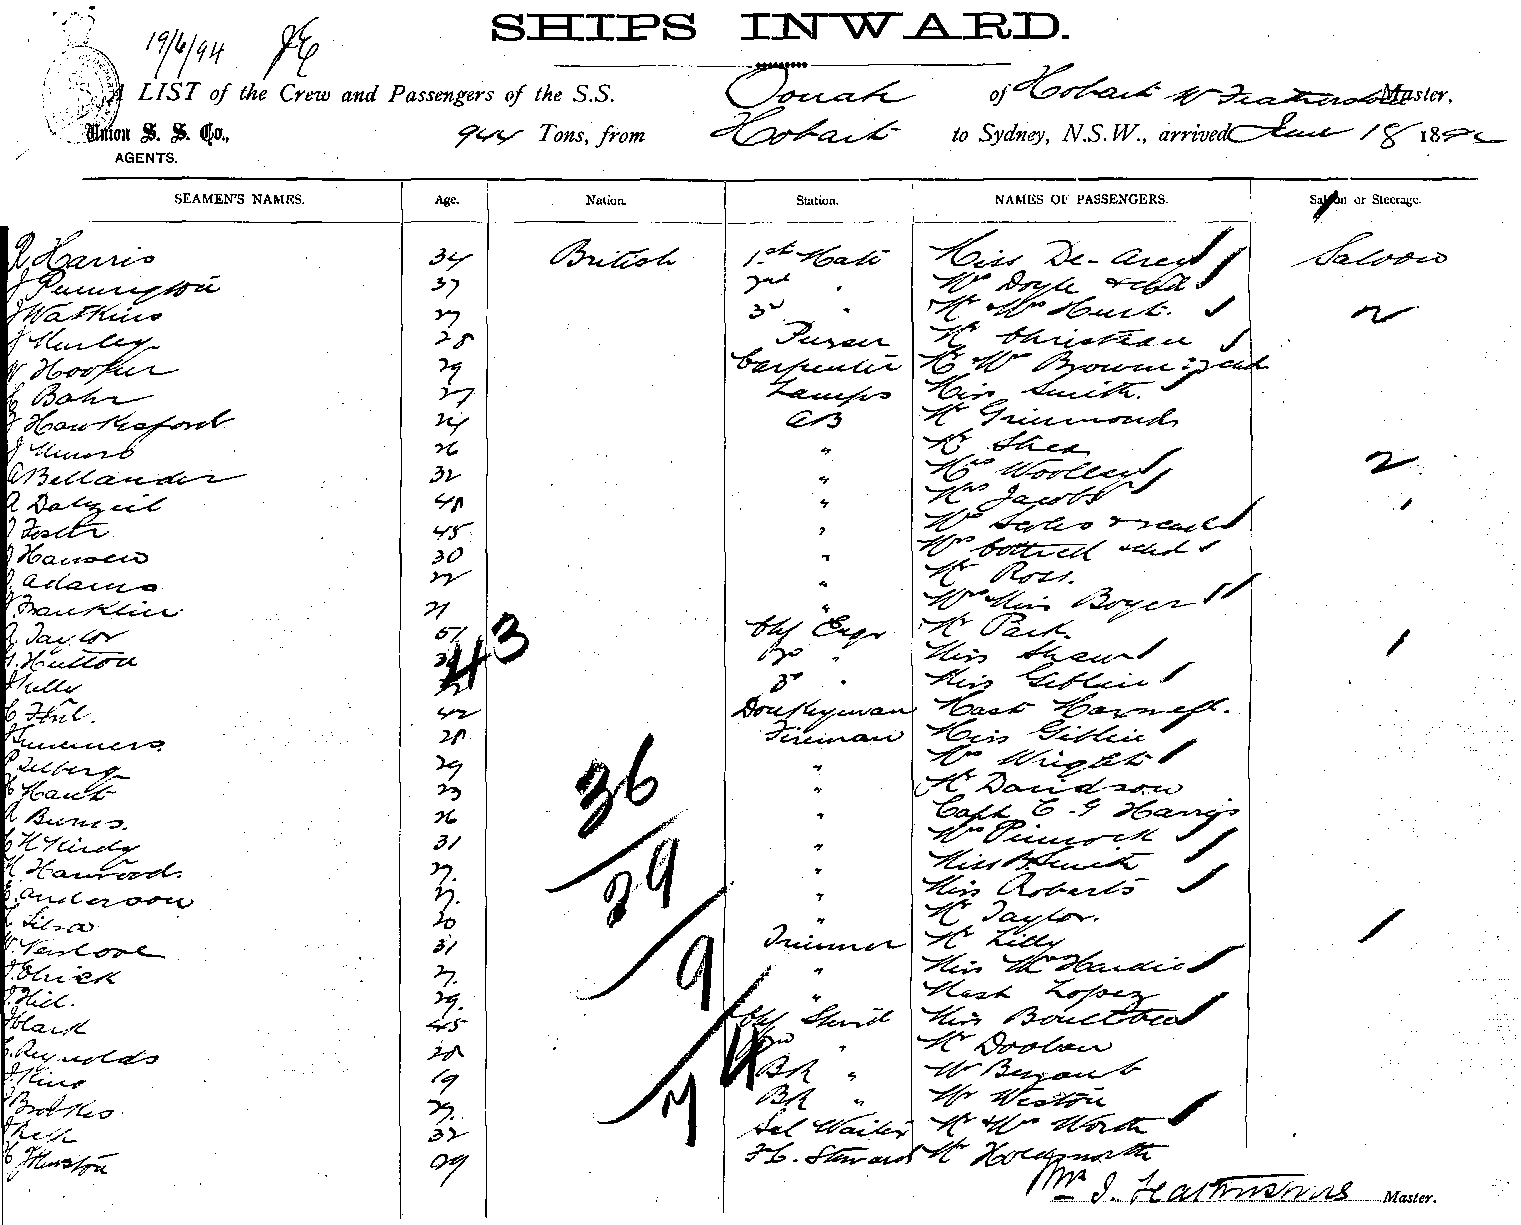 SHIPS INWARD.
19/6/94
A LIST of the Crew and Passengers of the S.S. Oonah of Hobart W Featherstone Master.
Union S. S. Co., 944 Tons, from Hobart to Sydney, N.S.W., arrived June 18 18
AGENTS.
SEAMEN'S NAMES. Age. Nation. Station. NAMES OF PASSENGERS. Saloon or Steerage.
R Harris 34 British 1st Mate Miss De-Arcy Saloon
J Pennington 37 2nd " Mrs Doyle & chd
J Watkins 27 3rd " Mr Mrs Hurt. 2
J Hurley 28 Purser Mr Christian
W Hooper 29 Carpenter Mr Mrs Brown & 2 chd
C Bahr 27 Lamps Miss Smith.
Hawkesford 24 AB Mr Grimmond
J 26 " Mr Shea
A Bellander 32 " Mrs Woolley 2
A Dalziel 48 " Mrs Jacobs
J Foster 45 " Mrs & 2 chd
J Hansen 30 " Mrs Cottrell & chd
J Adams 22 " Mr Ross.
Franklin 21 " Mrs Miss Boyer
A Taylor 51 Chf Engr Mr Park.
43
Hutton 2nd " Miss Shaw
Kelly 3rd " Miss Giblin
C 42 Donkeyman Mast
Summers 28 Fireman Miss Giblin
P Selberg 29 " Mrs Wright
36
Hart 23 " Mr Davidson
A Burns. 26 " Capt C. G Harris
McKirdy 31 " Mrs Pinnock
29
Harwood. 27. " Miss B Smith
Anderson 27. " Miss Roberts
Silva 20 " Mr Taylor.
31 Trimmer Mr Lilly
9
27. " Miss McHardie
J Hill. 29. " Mast Lopez
45 Chf Stewd Miss Boulton
4
C Reynolds 28 2nd " Mr Doolan
J King 19 BR " Mr Bezant
7
Brookes 27. BR " Mr Weston
32 Sal Waiter Mr & Mrs Worth
29 F.C. Steward Mr Holdsworth
Wm J. Featherstone Master.